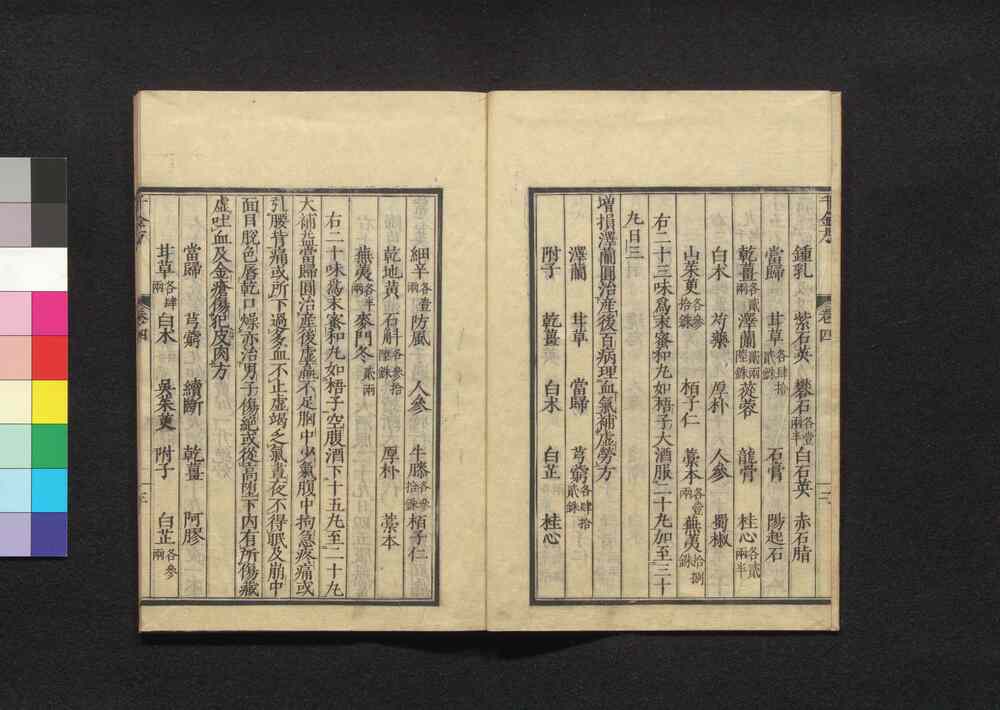 鍾乳 紫石英 礬石各壹兩半 白石英 赤石脂
當歸 甘草各肆拾貳銖 石膏 陽起石
乾薑各貳兩 澤蘭貳兩陸銖 蓯蓉 龍膏 桂心各貳兩半
白朮 芍藥 厚朴 人參 蜀椒
山茱萸各參拾銖 栢子仁 藁本各壹兩 蕪荑拾捌銖
右二十三味爲末蜜和丸如梧子大酒服二十丸加至三十
丸日三
增損澤蘭圓治産後百病理血氣補虛勞方
澤蘭 甘草 當歸 芎藭各肆拾貳銖
附子 乾薑 白朮 白芷 桂心
卷四
細辛各壹兩 防風 人參 牛膝各參拾銖 栢子仁
乾地黄 石斛各參拾陸銖 厚朴 藁本
蕪荑各半兩 麥門冬貳兩
右二十味爲末蜜和丸如梧子空腹酒下十五丸至二十丸
大補益當歸圓治産後虛羸不足胸中少氣腹中拘急疼痛或
引腰背痛或所下過多血不止虛竭乏氣晝夜不得眠及崩中
面目脫色唇乾口燥亦治男子傷絕或從高墮下内有所傷藏
虛吐血及金瘡傷犯皮肉方
當歸 芎藭 續斷 乾薑 阿膠
甘草各肆兩 白朮 吳茱萸 附子 白芷各參兩
千金方
卷四